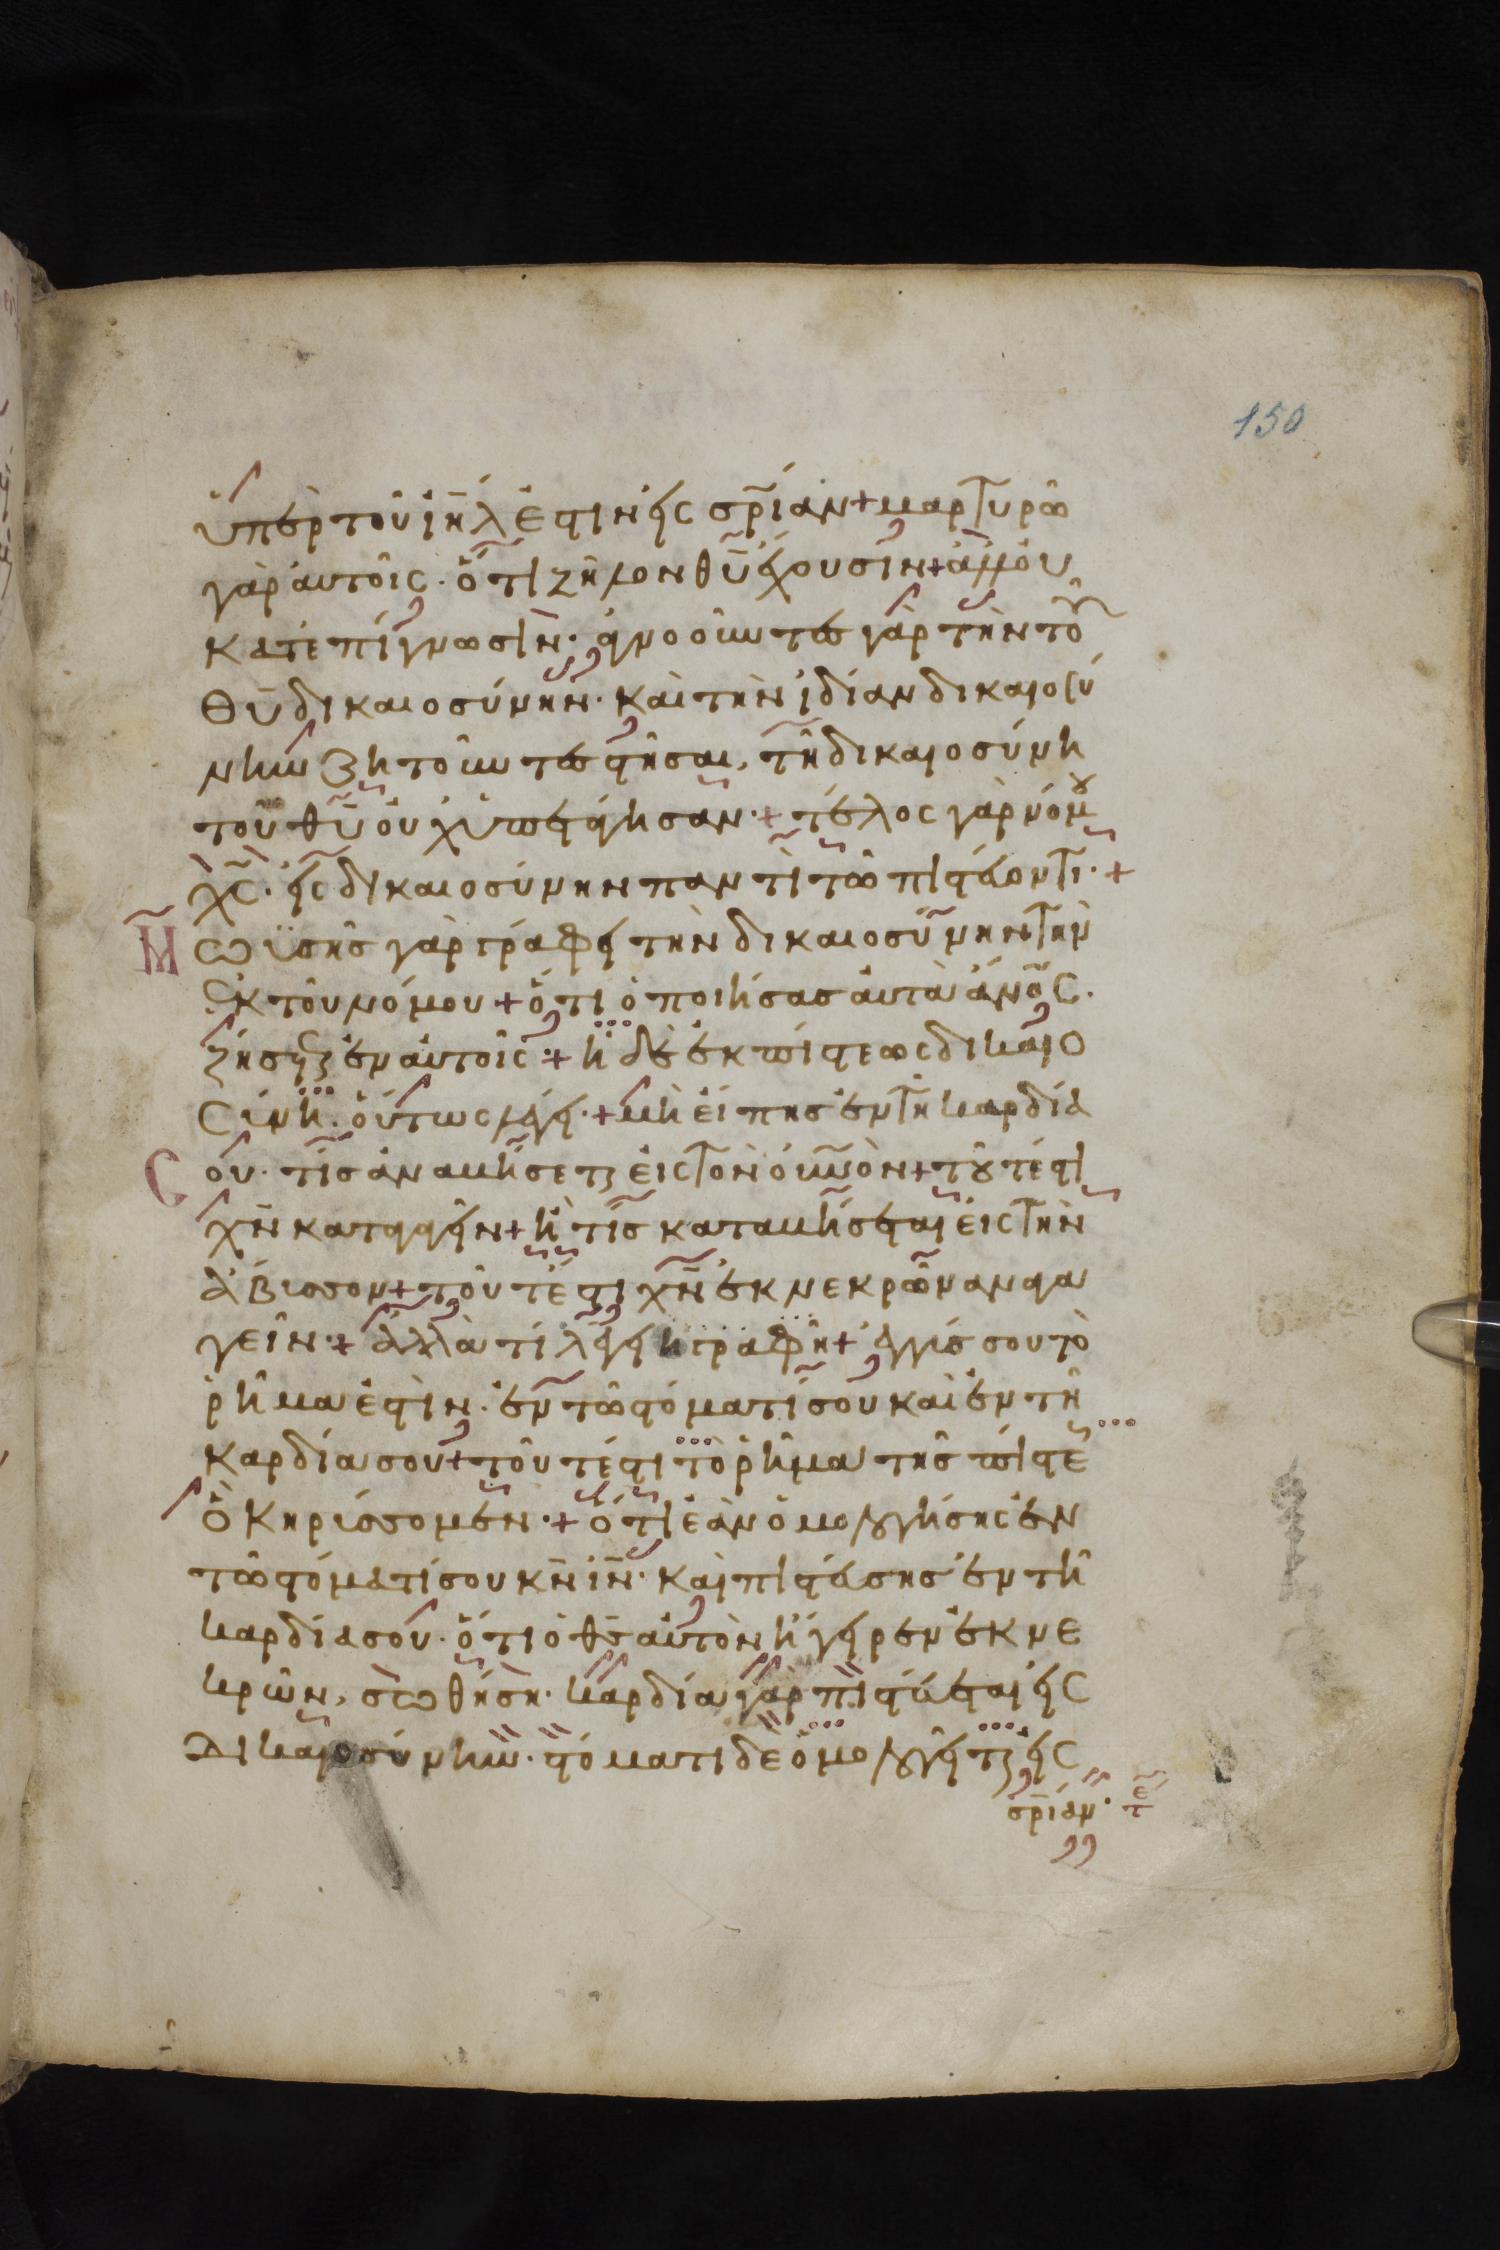 150
ὑπὲρ τοῦ ἰη̅λ ἐστὶν εἰς σρ̅ίαν + μαρτυρῶ
γὰρ αὐτοῖς · ὅτι ζῆλον θυ̅ ἔχουσιν + ἀλλ' οὐ
κατ' ἐπίγνωσιν · ἀγνοοῦντες γὰρ τὴν τοῦ
θυ̅ δικαιοσύνην · καὶ τὴν ἰδίαν δικαιοσύ
νην ζητοῦντες στῆσαι, τῇ δικαιοσύνη
τοῦ θυ̅ οὐχ ὑπετάγησαν · + τέλος γὰρ νόμου
χς̅ · εἰς δικαιοσύνην παντὶ τῶ πιστεύοντι · +
Μωϋσῆς γὰρ γράφει τὴν δικαιοσύνην τὴν
ἐκ τοῦ νόμου + ὅτι ὁ ποιήσας αὐτὰ ἄνο̅ς ·
ζήσεται ἐν αὐτοῖς · + ἡ δὲ ἐκ πίστεως δικαιο
σύνη · οὕτως λέγει · + μὴ εἴπης ἐν τῆ καρδία
Σου · τίς ἀναβήσεται εἰς τὸν οὐν̅ον + τουτέστι
χν̅ καταγαγεῖν + ἢ τίς καταβήσεται εἰς τὴν
ἄβυσσον + τοῦτέστι χν̅ ἐκ νεκρῶν ἀναγα
γεῖν · + ἀλλὰ τί λέγει ἡ γραφή + ἐγγύς σου τὸ
ῥῆμα ἐστὶν · ἐν τῶ στόματί σου καὶ ἐν τῆ
καρδία σου + τοῦτέστι τὸ ῥῆμα τῆς πίστε
ὃ κηρύσσομεν · + ὅτι ἐὰν ὁμολογήσης ἐν
τῶ στόματί σου κν̅ ιν̅ · καὶ πιστεύσης ἐν τῆ
καρδία σου · ὅτι ὁ θς̅ αὐτὸν ἤγειρεν ἐκ νε
κρῶν, σωθήση · καρδία γὰρ πιστεύεται εἰς
δικαιοσύνην · στόματι δὲ ὁμολογεῖται εἰς
σρ̅ίαν ·